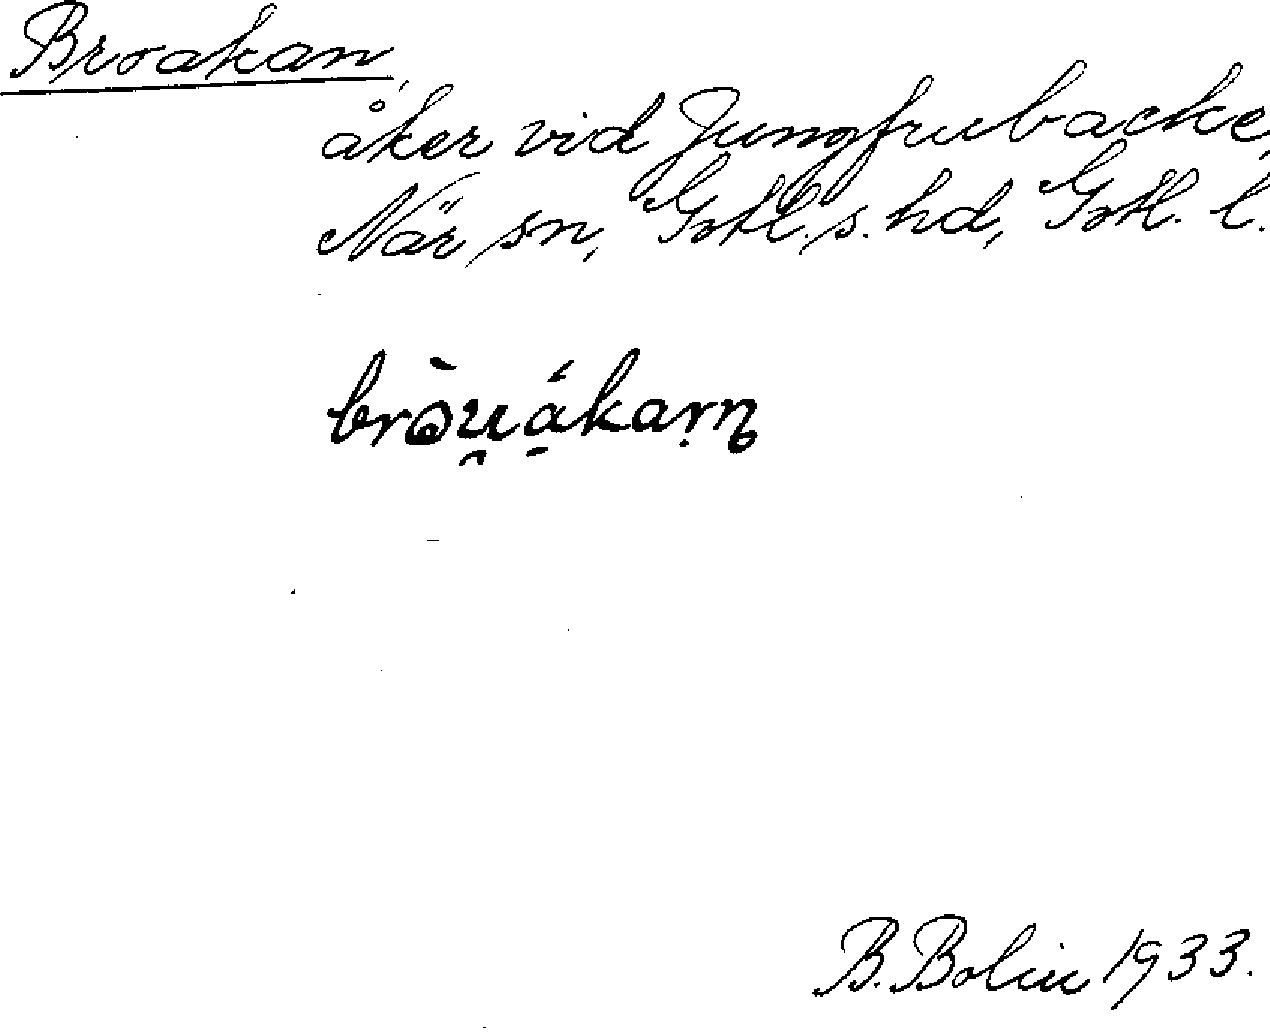 Broakan,
åker vid Jungfrubacke,
När sn, Gotl. s. hd, Gotl. l.
B. Bolin 1933.